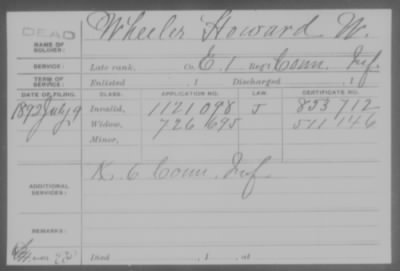 DEAD
NAME OF SOLDIER: Wheeler Howard W.
SERVICE: Late rank, Co. E. 1 Reg't Conn. Inf.
TERM OF SERVICE: Enlisted , 1 Discharged , 1
DATE OF FILING. CLASS. APPLICATION NO. LAW. CERTIFICATE NO.
1892 July 9 Invalid, 1121 098 J 853 712
Widow, 726 695 511 146
Minor,
ADDITIONAL SERVICES: K. 6 Conn. Inf.
REMARKS:
Died , 1 , at